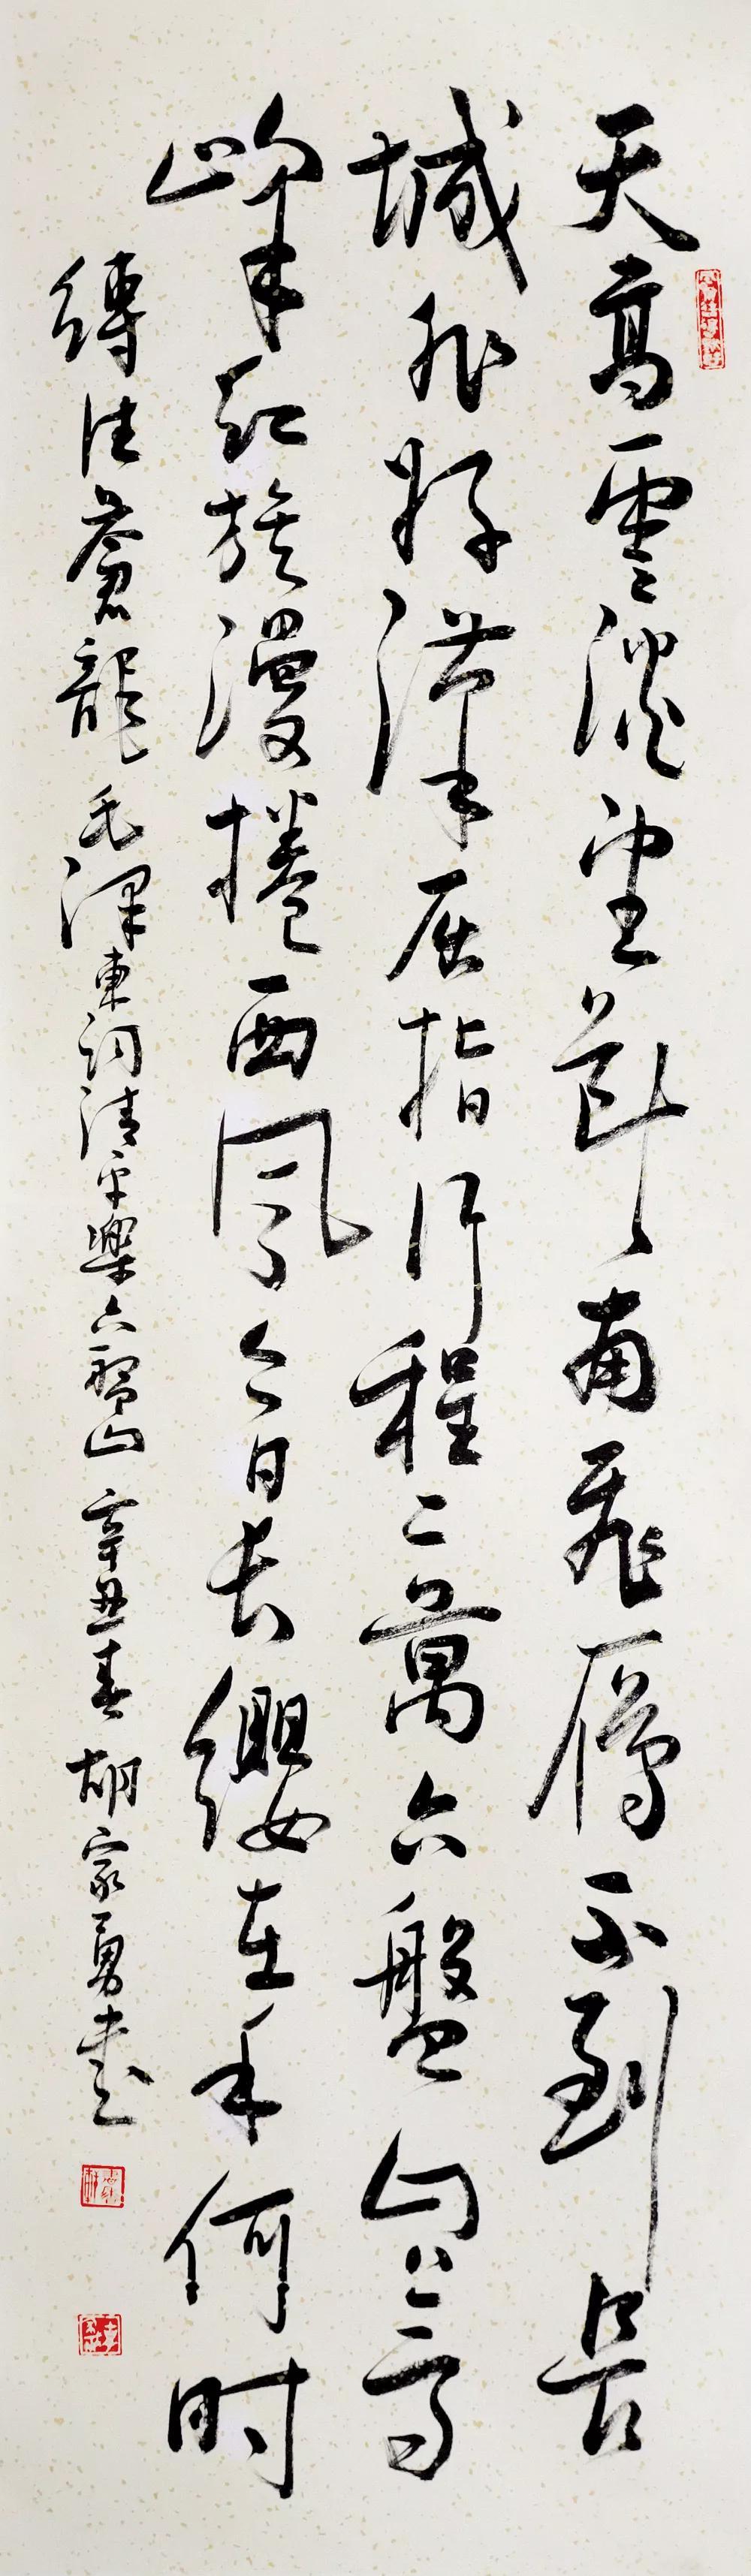 天高雲淡望斷南飛雁不到長
城非好漢屈指行程二萬六盤山上高
峰紅旗漫捲西風今日長纓在手何时
縛住蒼龍 毛澤東詞清平樂六盤山 辛丑春 胡家勇書